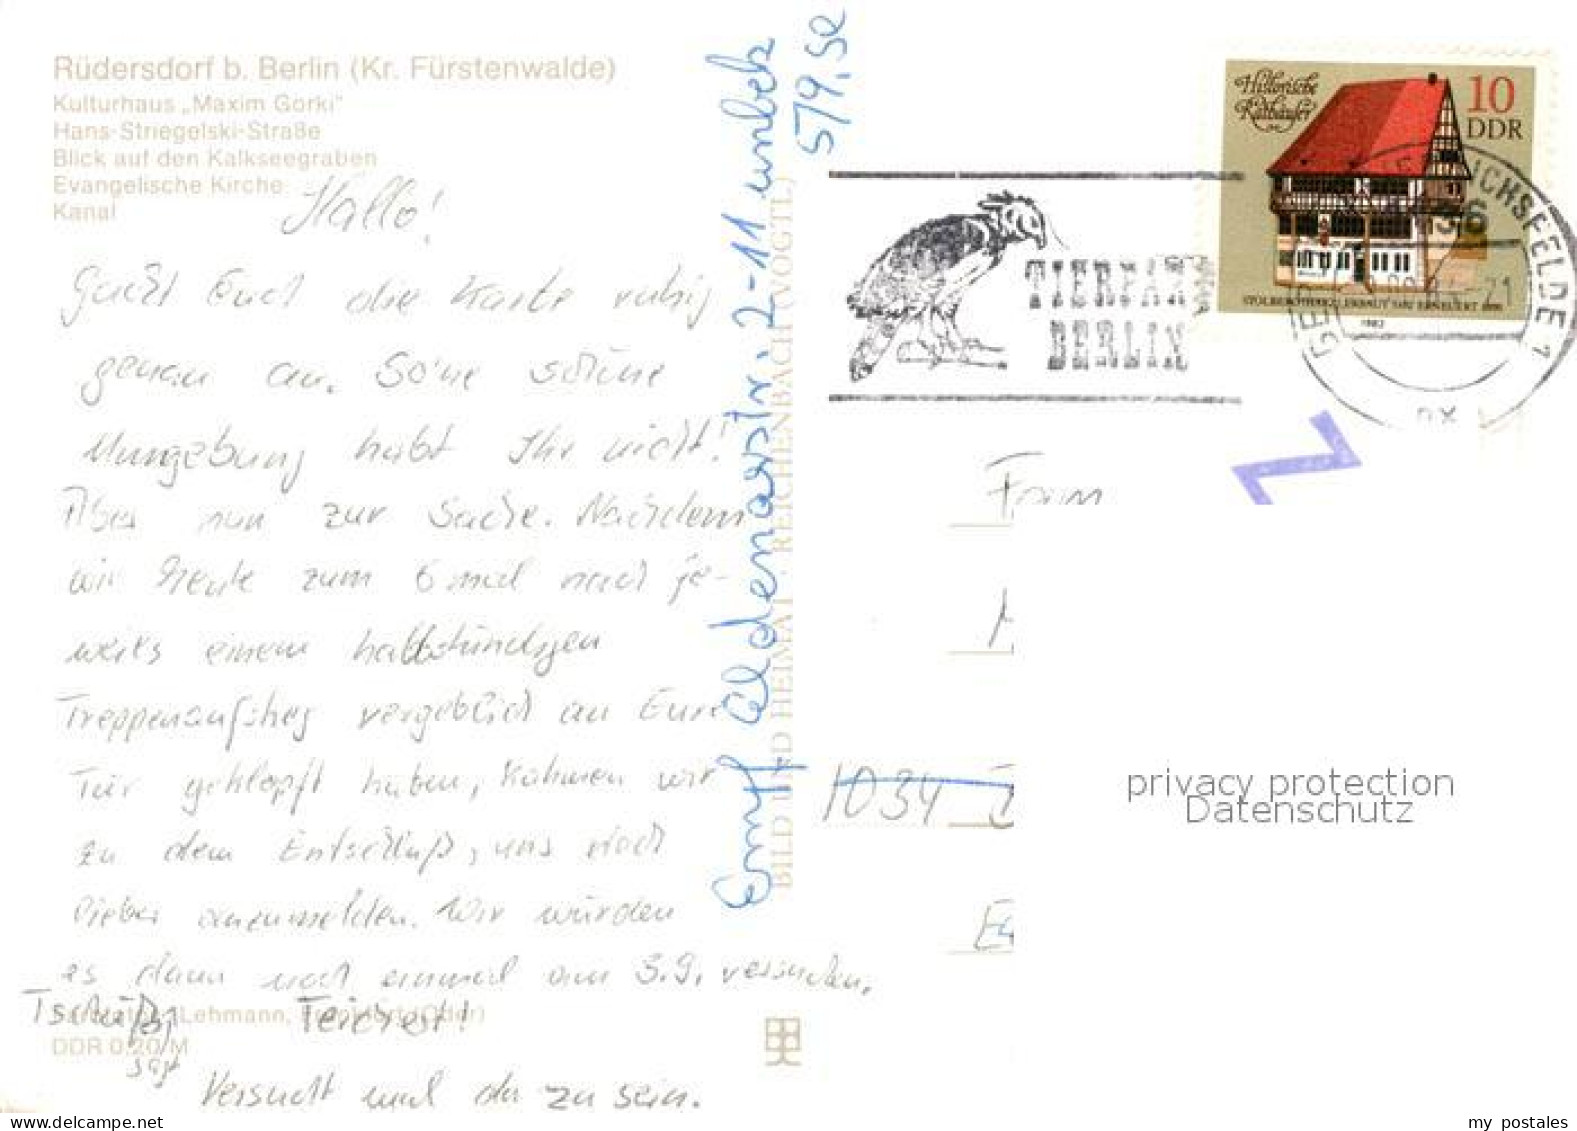 Rüdersdorf b. Berlin (Kr. Fürstenwalde)
Kulturhaus „Maxim Gorki"
Hans-Striegelski-Straße
Blick auf den Kalkseegraben
Evangelische Kirche
Kanal
Hallo!
Guckt Euch die Karte ruhig
genau an. So'ne schöne
Umgebung habt Ihr nicht!
Aber nun zur Sache. Nachdem
wir heute zum 6 mal nach je-
weils einem halbstündigen
Treppenaufstieg vergeblich an Eure
Tür geklopft haben, kahmen wir
zu dem Entschluß, uns doch
lieber anzumelden. Wir würden
es dann noch einmal am 3.9. versuchen.
Tschüß sagt Teichert!
Lehmann, Frankfurt (Oder)
DDR 0,20/M
Versucht mal da zu sein.
BILD UND HEIMAT REICHENBACH (VOGTL)
Empf Aldenarstr. 2-11 unbek
579, Se
Historische
Rathäuser
10
DDR
1982
TIERPARK
BERLIN
Frau
1034
privacy protection
Datenschutz
www.ansichtskartenversand.com
my postales